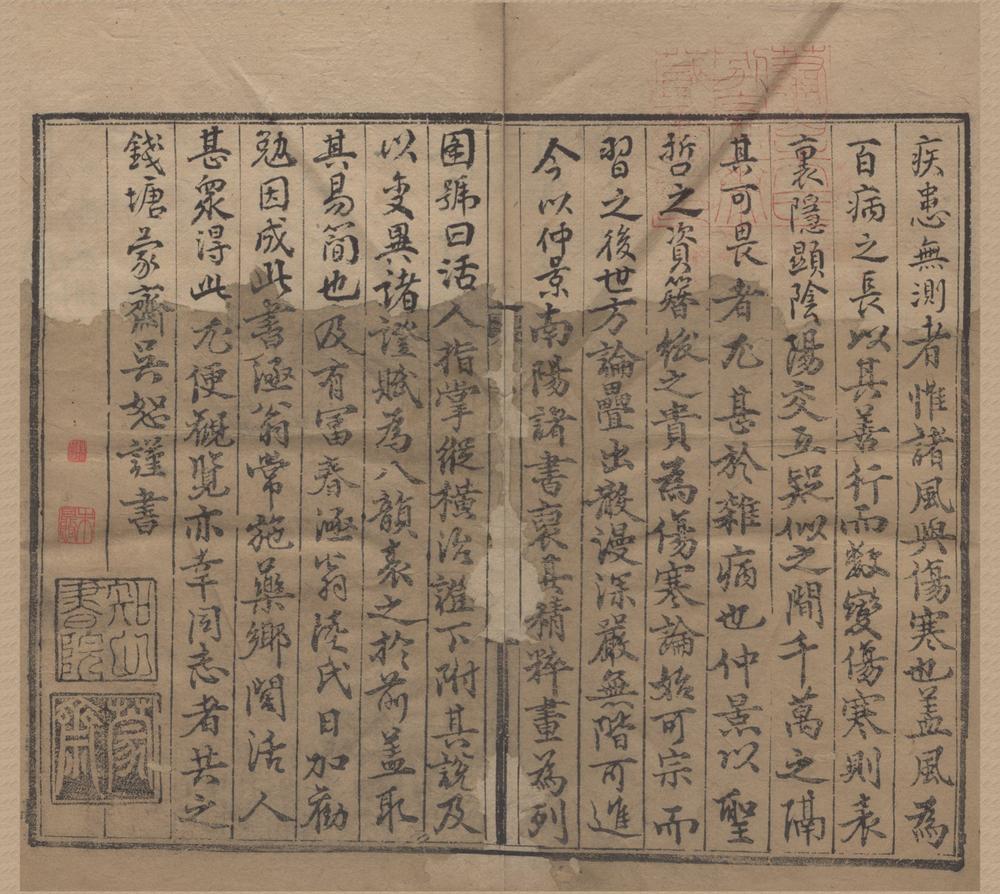 疾患無測者惟諸風與傷寒也盖風為
百病之長以其善行而數變傷寒則表
裏隱顯陰陽交互疑似之間千萬之隔
其可畏者尤甚於雜病也仲景以聖
哲之資簪紱之貴為傷寒論始可宗而
習之後世方論疊出散漫深嚴無階可進
今以仲景南陽諸書裒其精粹畫為列
圖號曰活人指掌縱橫治證下附其説及
以变異諸證賦為八韻表之於前盖取
其易簡也及有冨春極翁陸氏日加勸
勉因成此書極翁常施藥鄉閭活人
甚衆得此尤便觀覽亦幸同志者共之
錢塘蒙齋吴恕謹書
知山書院
蒙齋